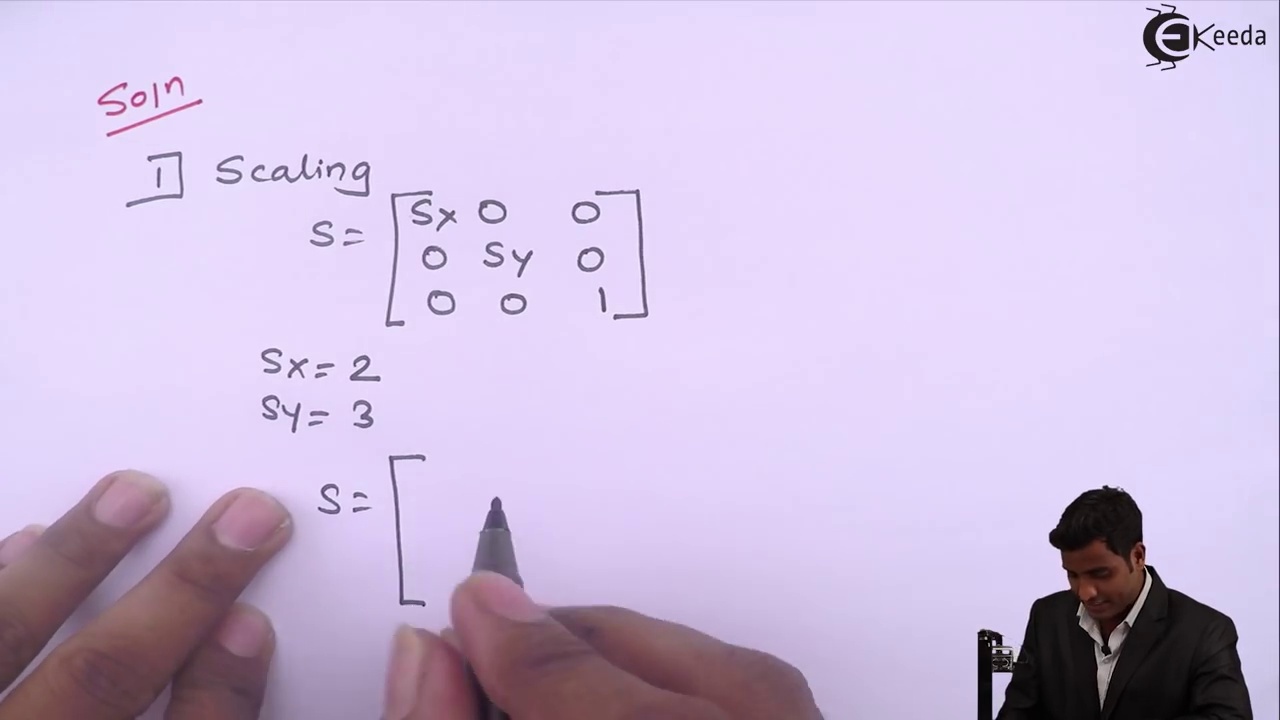 EKeeda
Soln
1] Scaling
S= [Sx 0 0
0 Sy 0
0 0 1]
Sx= 2
Sy= 3
S= [